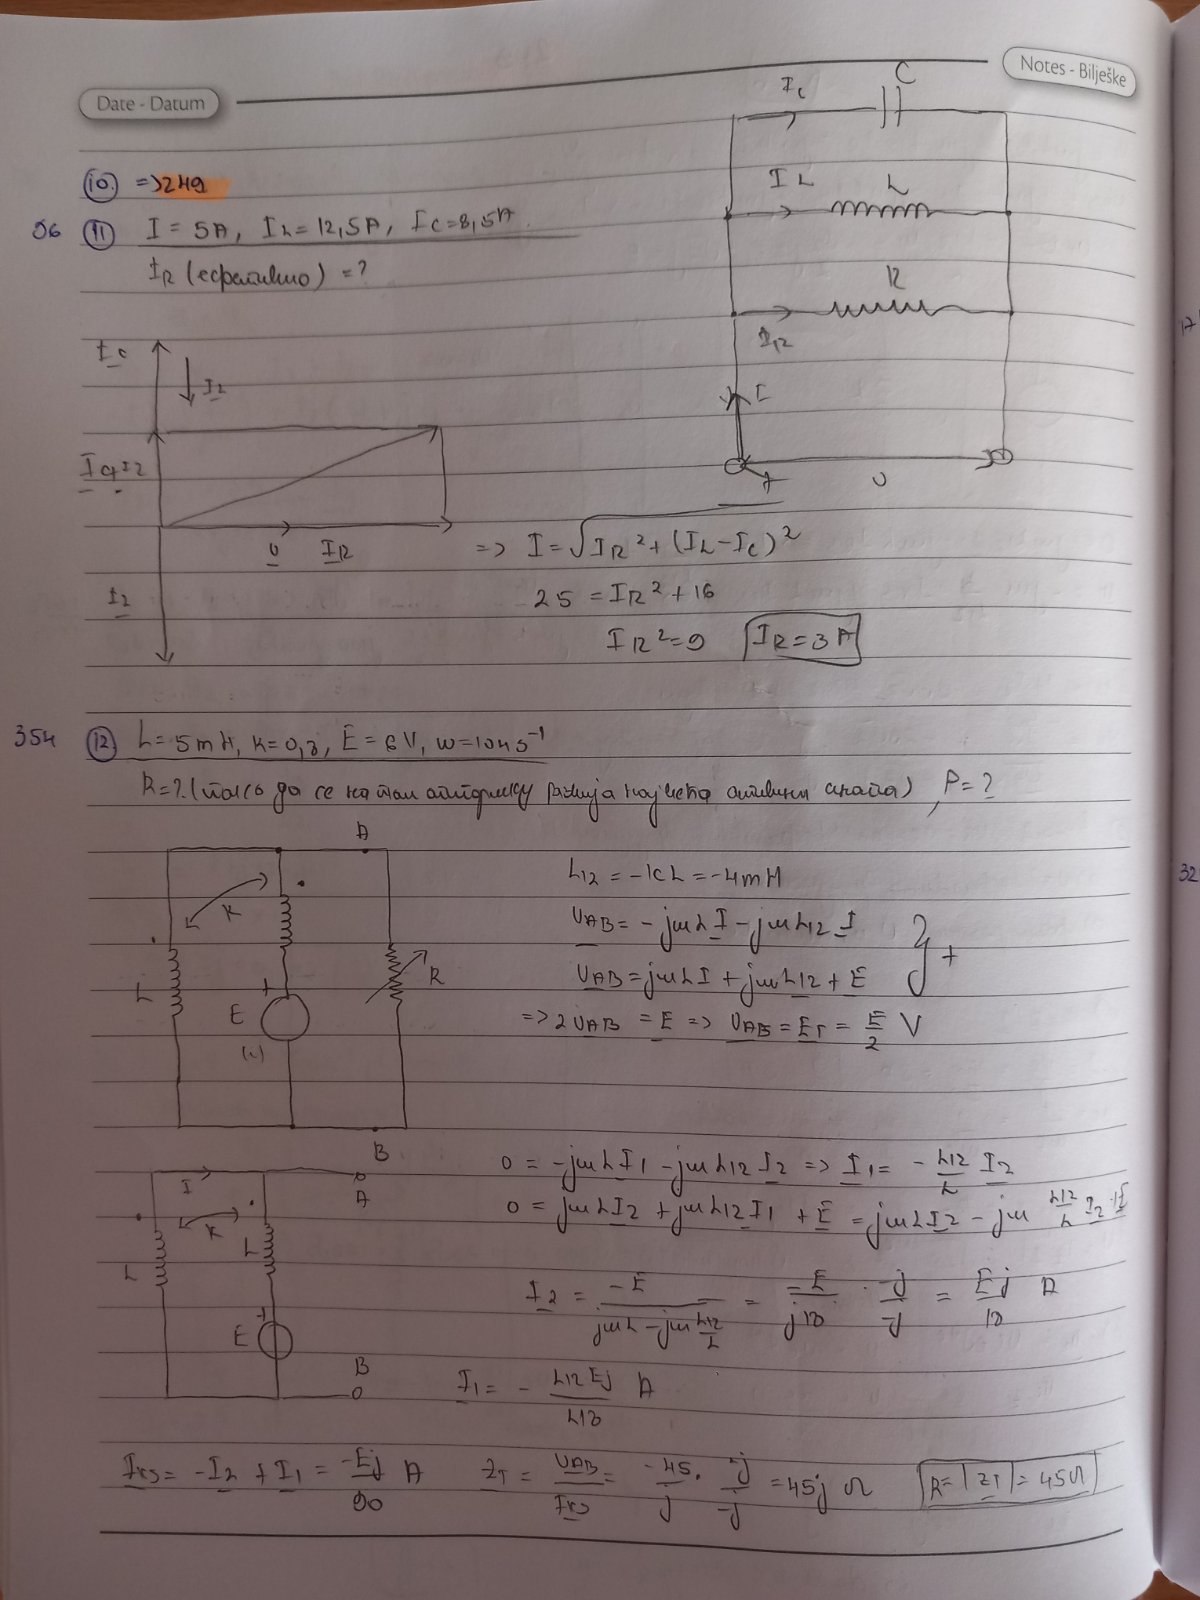 Date - Datum
Notes - Bilješke
10. => 249
06 11 I = 5A, IL = 12,5A, IC = 8,5A
IR (ефективно) = ?
IC
C
IL
L
R
IR
I
U
IC
IL
U IR
I2
=> I = √IR² + (IL - IC)²
25 = IR² + 16
IR² = 9 IR = 3A
354 12. L = 5mH, K = 0,8, E = 6V, ω = 104 s⁻¹
R = ? ( да се на највећа активна снага), P = ?
A
K
L
E
(~)
R
B
L12 = -KL = -4mH
UAB = -jωLI - jωL12 I
UAB = jωLI + jωL12 + E
} +
=> 2UAB = E => UAB = ET = E/2 V
I
K
A
L
L
E
B
0 = -jωLI1 - jωL12 I2 => I1 = - L12/L I2
0 = jωLI2 + jωL12 I1 + E = jωLI2 - jω L12/L I2 + E
I2 = -E/(jωL - jω L12/L) = -E/j18 · -j/-j = Ej/18 A
I1 = - L12 Ej/L18 A
Iks = -I2 + I1 = -Ej/90 A
ZT = UAB/Iks = -45/j · -j/-j = 45j Ω
R = |ZT| = 45Ω
+
+
17
32